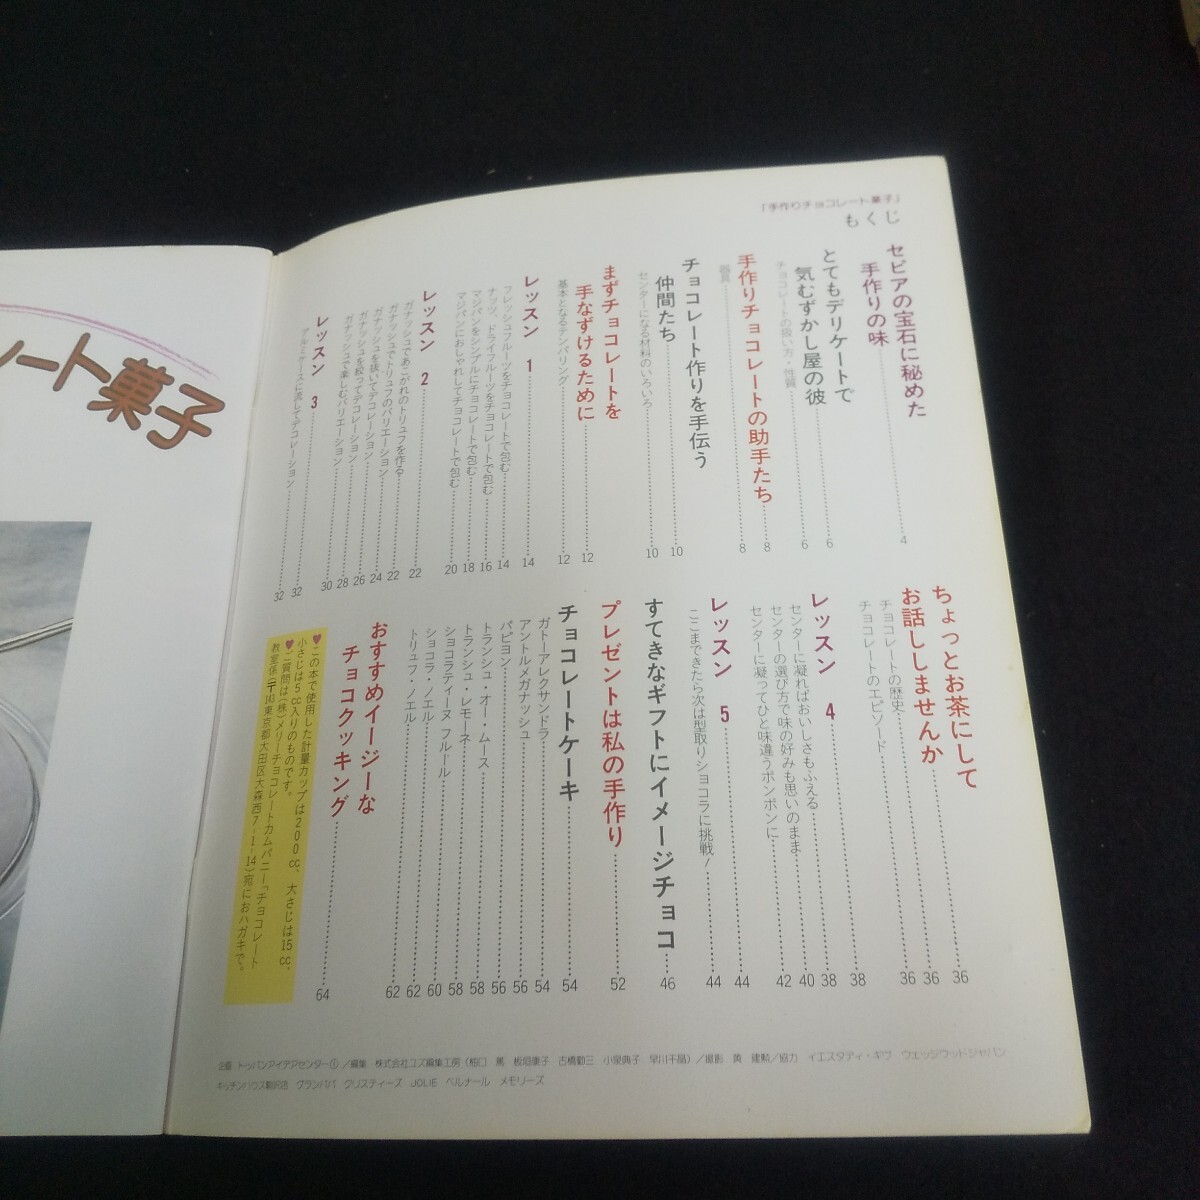 レート菓子
「手作りチョコレート菓子」
もくじ
セピアの宝石に秘めた
手作りの味……4
とてもデリケートで
気むずかし屋の彼……6
チョコレートの扱い方・性質……6
手作りチョコレートの助手たち……8
器具……8
チョコレート作りを手伝う
仲間たち……10
センターになる材料のいろいろ……10
まずチョコレートを
手なずけるために……12
基本となるテンパリング……12
レッスン 1……14
フレッシュフルーツをチョコレートで包む……14
ナッツ、ドライフルーツをチョコレートで包む……16
マジパンをシンプルにチョコレートで包む……18
マジパンにおしゃれしてチョコレートで包む……20
レッスン 2……22
ガナッシュであこがれのトリュフを作る……22
ガナッシュでトリュフのバリエーション……24
ガナッシュを抜いてデコレーション……26
ガナッシュを絞ってデコレーション……28
ガナッシュで楽しむバリエーション……30
レッスン 3……32
アルミケースに流してデコレーション……32
ちょっとお茶にして
お話ししませんか……36
チョコレートの歴史……36
チョコレートのエピソード……36
レッスン 4……38
センターに凝ればおいしさもふえる……38
センターの選び方で味の好みも思いのまま……40
センターに凝ってひと味違うボンボンに……42
レッスン 5……44
ここまできたら次は型取りショコラに挑戦！……44
すてきなギフトにイメージチョコ…46
プレゼントは私の手作り……52
チョコレートケーキ……54
ガトーアレクサンドラ……54
アントルメガナッシュ……56
パピヨン……56
トランシュ・オー・ムース……58
トランシュ・レモーネ……58
ショコラティーヌ フルール……60
ショコラ・ノエル……62
トリュフ・ノエル……62
おすすめイージーな
チョコクッキング……64
♥この本で使用した計量カップは200cc、大さじは15cc、
小さじは5cc入りのものです。
♥ご質問は(株)メリーチョコレートカムパニー「チョコレート
教室係(〒143東京都大田区大森西7-1-14)宛におハガキで。
企画 トッパンアイデアセンター⑮／編集 株式会社ユズ編集工房(柚口 篤 板垣康子 古橋勤三 小泉典子 早川千晶)／撮影 黄 建勲／協力 イエスタデイ・ギヴ ウェッジウッドジャパン
キッチンハウス駒沢店 グランパパ クリスティーズ JOLIE ベルナール メモリーズ